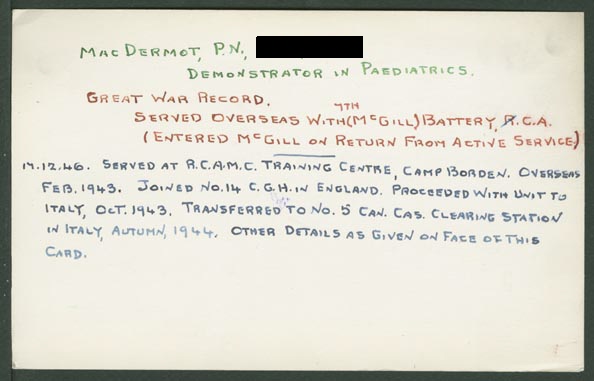 MacDermot, P.N.,
Demonstrator in Paediatrics.
Great War Record.
7th
Served Overseas With (McGill) Battery, R.C.A.
(Entered McGill on Return From Active Service)
17.12.46. Served at R.C.A.M.C. Training Centre, Camp Borden. Overseas
Feb. 1943. Joined No. 14 C.G.H. in England. Proceeded With Unit to
Italy, Oct. 1943. Transferred to No. 5 Can. Cas. Clearing Station
in Italy, Autumn, 1944. Other Details as Given on Face of This
Card.